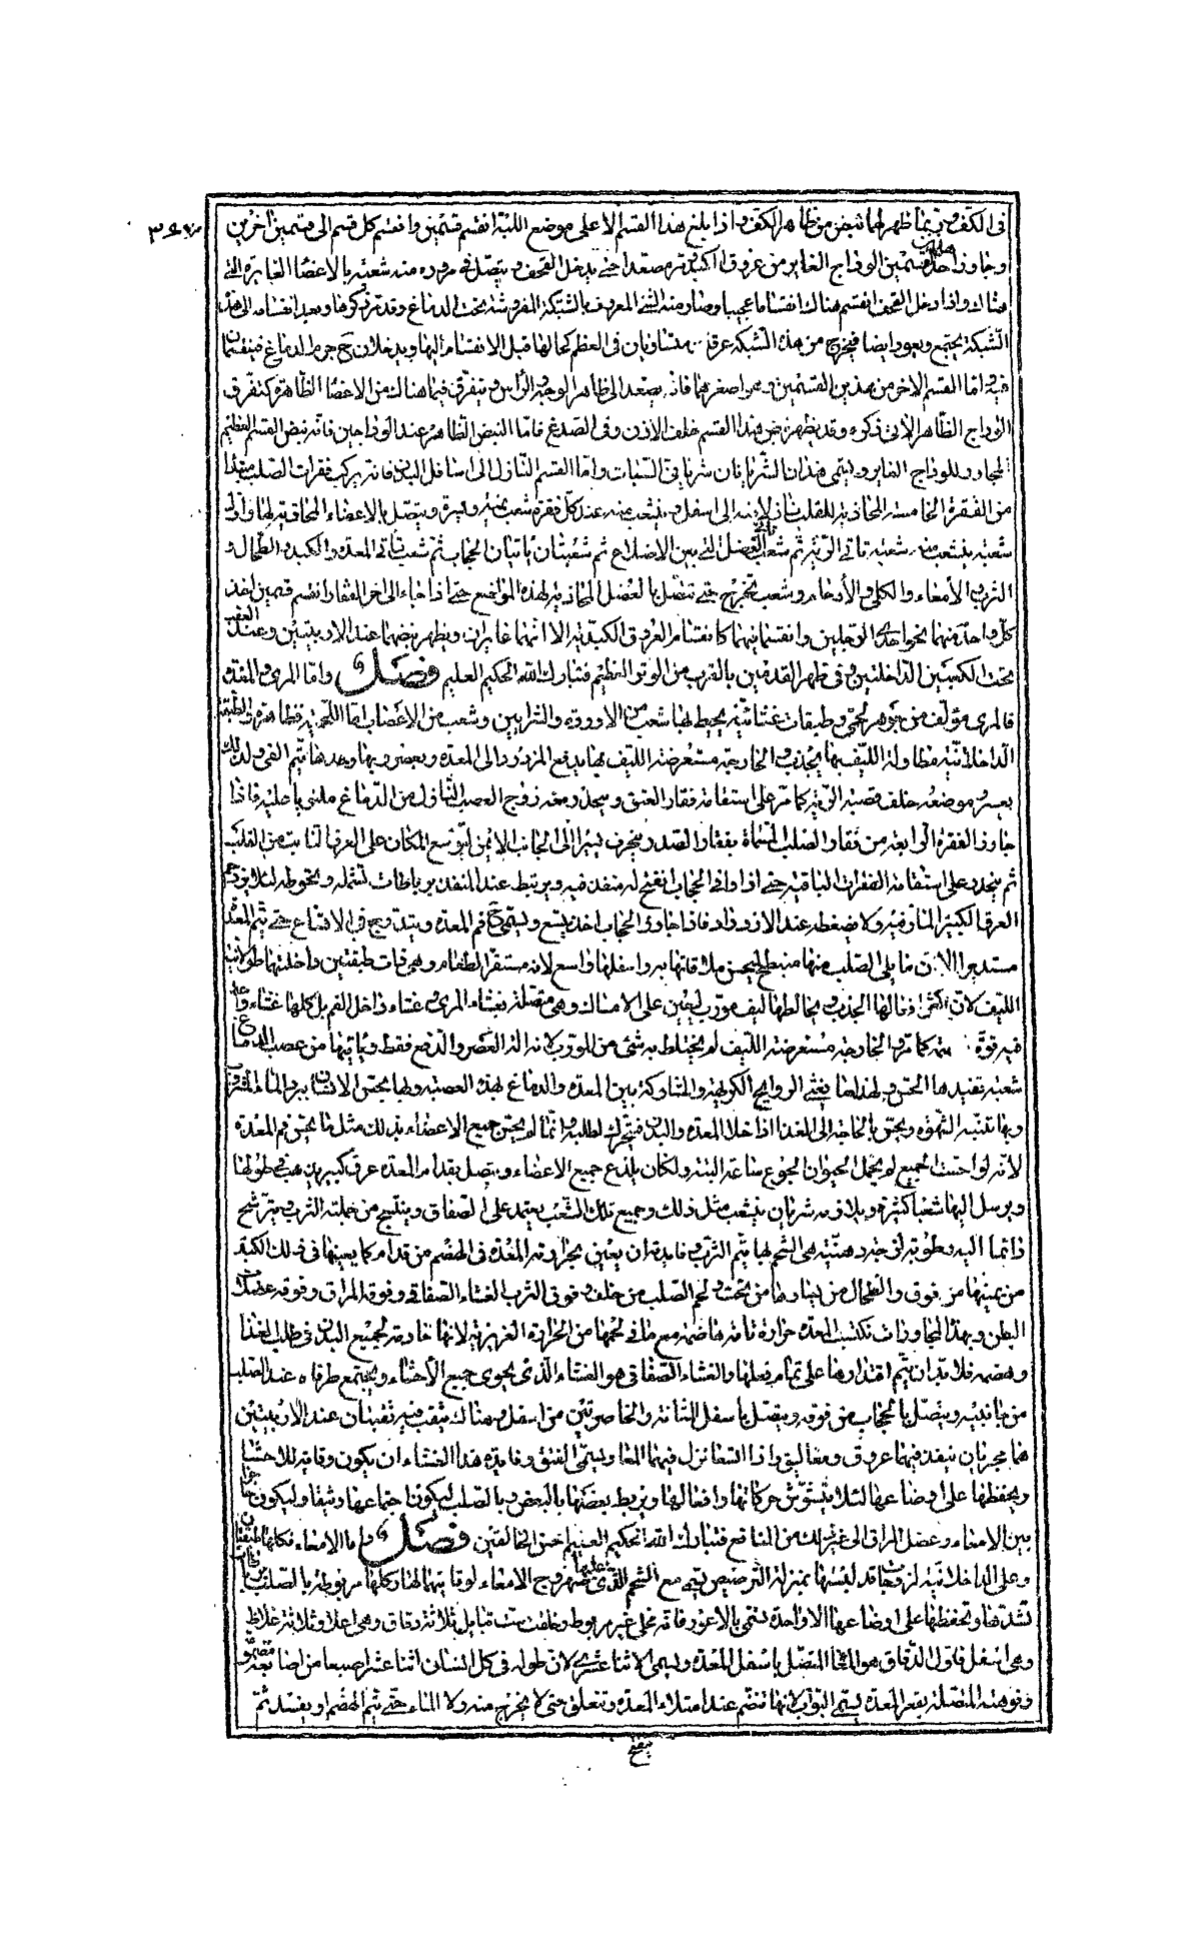 ٣٤٧
فى الكتف وربما ظهر لها نبض من ظاهر الكتف واذا بلغ هذا القسم الاعلى موضع اللبة انقسم قسمين وانقسم كل قسم الى قسمين اخرين
وجاوز احد القسمين الوداج الغاير من عروق الكبد ثم مصعدا حتى يدخل القحف ويتصل فى مروره منه شعبة بالاعضا الغايرة التى
هناك واذا دخل القحف انقسم هناك انقساما عجيبا وصار منه الشئ المعروف بالشبكة المفروشة تحت الدماغ وقد مر ذكرها وبعد انقسامه الى هذه
الشبكة يجتمع ويعود ايضا فيخرج من هذه الشبكة عرقان متساويان فى العظم كحالهما قبل الانقسام اليها ويدخلان ح جرم الدماغ فينقسمان
فيه واما القسم الاخر من هذين القسمين وهو اصغرهما فانه يصعد الى ظاهر الوجه والراس ويتفرق فيما هناك من الاعضا الظاهرة كتفرق
الوداج الظاهر الاتى ذكره وقد يظهر نبض هذا القسم خلف الاذن وفى الصدغ فاما النبض الظاهر عند الوداجين فانه نبض القسم العظيم
المجاور للوداج الغاير ويسمى هذان الشريانان شريانى السبات واما القسم النازل الى اسافل البدن فانه يركب فقرات الصلب مبتدا
من الفقرة الخامسة المحاذية للقلب نازلا منه الى اسفل وينشعب منه عند كل فقرة شعب يمنة ويسرة ويتصل بالاعضاء المحاذية لها واول
شعبة ينشعب منه شعبة تاتى الرية ثم شعب تاتى العضل التى بين الاضلاع ثم شعبتان ياتيان الحجاب ثم شعب تاتى المعدة والكبد والطحال و
الثرب والامعاء والكلى والارحام وشعب تخرج حتى تتصل بالعضل المحاذية لهذه المواضع حتى اذا جاء الى اخر الفقار انقسم قسمين اخذ
كل واحد منهما نحو احدى الرجلين وانقسما فيهما كانقسام العروق الكبدية الا انهما غايران ويظهر نبضهما عند الاربيتين وعند العقب
تحت الكعبين الداخلتين وفى ظهر القدمين بالقرب من الوتر العظيم فتبارك الله الحكيم العليم فصل واما المرى والمعدة
فالمرى مؤلف من جوهر لحمى وطبقات غشائية يحيط لها شعب من الاوردة والشرايين وشعب من الاعضاب اما اللحمية فظاهرة والطبقة
الداخلانية مطاولة الليف بها يجذب والخارجة مستعرضة الليف بها يدفع المزدرد الى المعدة وبعضر وبها وحدها يتم القى ولذلك
يعسر وموضعه خلف قصبة الرية كما مر على استقامة فقار العنق وينحدر ومعه زوج العصب النازل من الدماغ ملتويا عليه فاذا
جاوز الفقرة الرابعة من فقار الصلب المسماة بفقار الصدر ينحرف يسيرا الى الجانب الايمن لتوسع المكان على العرق النابت من القلب
ثم ينحدر على استقامة الفقرات الباقية حتى اذا وافى الحجاب انفتح له منفذ فيه ويرتبط عند المنفذ برباطات تشمله وتحوطه لئلا يزحم
العرق الكبير المار فيه ولا يضغطه عند الازدراد فاذا جاوز الحجاب اخذ يتسع ويسمى ح فم المعدة ويتدرج فى الاتساع حتى يتم المعدة
مستديرا الا ان ما يلى الصلب منها منبطح ليحسن ملاقاتها به واسفلها واسع لانه مستقر الطعام وهى ذات طبقتين داخلتهما طولانية
الليف لان اكثر افعالها الجذب ويخالطها ليف مورب ليعين على الامساك وهى متصلة بغشاء المرى وغشاء داخل الفم بل كلها غشاء واحد
فيه قوة هاضمة كما مر والخارجة مستعرضة الليف لم يختلط به شئ من المورب لانه الة العصر والدفع فقط وياتيها من عصب الدماغ
شعبة تفيدها الحس ولهذا ما يغثى الروايح الكريهة والمشاركة بين المعدة والدماغ لهذه العصبة ولها يحس الانسان ببرد الماء المشروب
وبها تنتبه الشهوة ويحس بالحاجة الى الغذا اذا خلا المعدة والبدن فيتحرك لطلبه وانما لم يحس جميع الاعضاء بذلك مثل ما يحس فم المعدة
لانه لو احست الجميع لم يحمل الحيوان الجوع ساعة البتة ولكان يلذع جميع الاعضاء ويتصل بقدام المعدة عرق كبير يذهب فى طولها
ويرسل اليها شعبا كثيرة ويلازمه شريان يتشعب مثل ذلك وجميع تلك الشعب يعتمد على الصفاق وينتسج من جملته الثرب ويترشح
دائما اليه رطوبة لزجة دهنية هى الشحم لها يتم الثرب وفايدته ان يعين بحرارته المعدة فى الهضم من قدام كما يعينها فى ذلك الكبد
من يمينها من فوق والطحال من يسارها من تحت ولحم الصلب من خلف وفوق الثرب الغشاء الصفاقى وفوقه المراق وفوقه عضلات
البطن وبهذا المجاورات تكتسب المعدة حرارة تامة هاضمة مع ما فى لحمها من الحرارة الغريزية لانها خادمة لجميع البدن فى طلب الغذا
وهضمه فلا بد ان يتم اقتدارها على تمام فعلها والغشاء الصفاقى هو الغشاء الذى يحوى جميع الأحشاء ويجتمع طرفاه عند الصلب
من جانبيه ويتصل بالحجاب من فوقه ويتصل باسفل المثانة والخاصرتين من اسفل وهناك يثقب فيه ثقبتان عند الاربيتين
هما مجريان ينفذ فيهما عروق ومعاليق واذا اتسعا نزل فيهما المعا ويسمى الفتق وفايدة هذا الغشاء ان يكون وقاية للاحشا
ويحفظها على اوضاعها لئلا يتشوش حركاتها وافعالها ويربط بعضها بالبعض وبالصلب ليكون اجتماعها وثيقا وليكون حاجزا
بين الامعاء وعضل المراق الى غير ذلك من المنافع فتبارك الله الحكيم العليم احسن الخالقين فصل واما الامعاء فكلها طبقتان
وعلى الداخلانية لزوجات قد لبستها بمنزلة الترصيص يسمى مع الشحم الذى عليها صهروج الامعاء لوقايتها لها وكلها مربوطة بالصلب برباطات
تشدها وتحفظها على اوضاعها الا واحدة تسمى بالاعور فانه مخلى غير مربوط وخلقت ست قبايل ثلاثة دقاق وهى اعلا وثلاثة غلاظ
وهى اسفل فاول الدقاق هو المعا المتصل باسفل المعدة ويسمى الاثنا عشرى لان طوله فى كل انسان اثنا عشر اصبعا من اصابعه مضمومة
وفوهته المتصلة بقعر المعدة يسمى البواب لانها تنضم عند امتلاء المعدة وتنغلق حتى لا يخرج منه ولا الماء حتى يتم الهضم او يفسد ثم
ينفتح